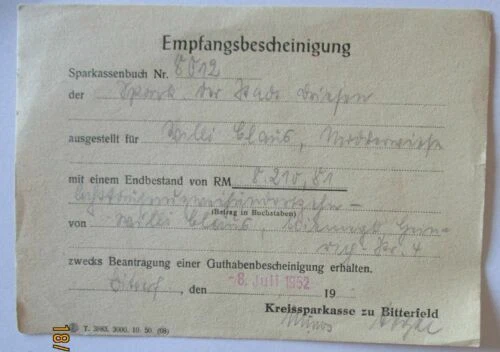 Empfangsbescheinigung
Sparkassenbuch Nr. 8012
der Spark. der Stadt Driesen
ausgestellt für Willi Claus,
mit einem Endbestand von RM 8.210,81
achttausendzweihundertzehn -
(Betrag in Buchstaben)
von Willi Claus,
zwecks Beantragung einer Guthabenbescheinigung erhalten.
den -8. Juli 1952 19
Kreissparkasse zu Bitterfeld
T. 3983. 3000. 10. 50. (68)
18/